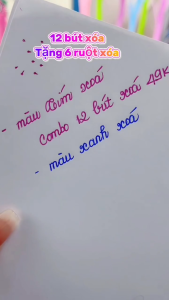 12 bút xóa
Tặng 6 ruột xóa
- màu tím xoá
Combo 12 bút xoá 49K
- màu xanh xoá